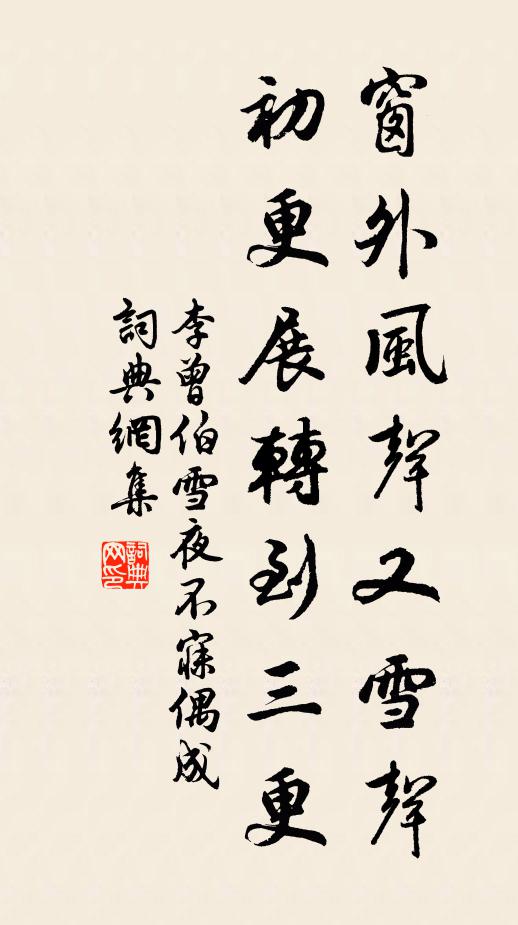 窗外風聲又雪聲
初更展轉到三更
李曾伯雪夜不寐偶成
詞典網集
詞典網印